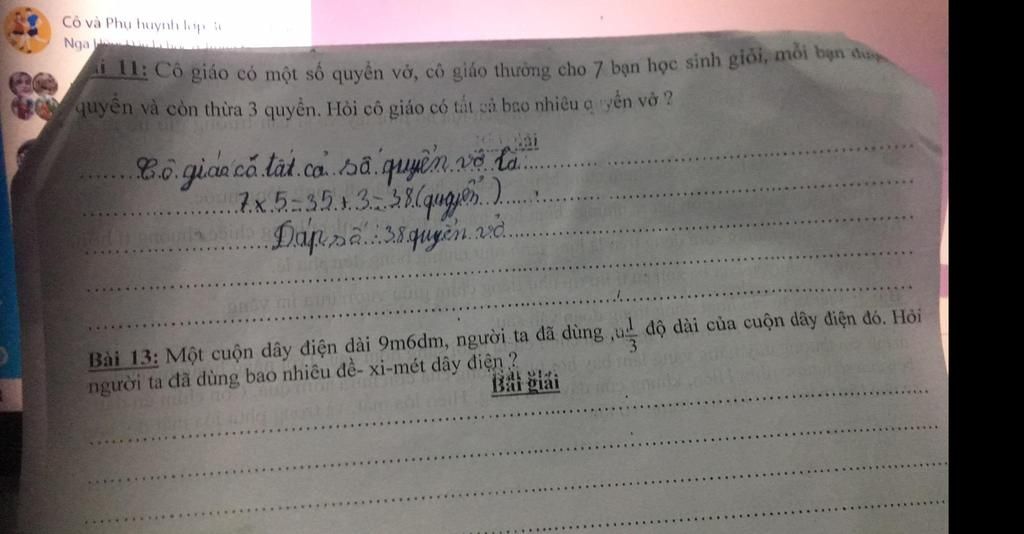 Cô và Phụ huynh lớp
Nga
11: Cô giáo có một số quyển vở, cô giáo thưởng cho 7 bạn học sinh giỏi, mỗi bạn
quyển và còn thừa 3 quyển. Hỏi cô giáo có tất cả bao nhiêu quyển vở ?
giải
Cô giáo có tất cả số quyển vở là:
7 x 5 = 35 + 3 = 38 (quyển)
Đáp số : 38 quyển vở
Bài 13: Một cuộn dây điện dài 9m6dm, người ta đã dùng 1/3 độ dài của cuộn dây điện đó. Hỏi
người ta đã dùng bao nhiêu đề- xi-mét dây điện ?
Bài giải